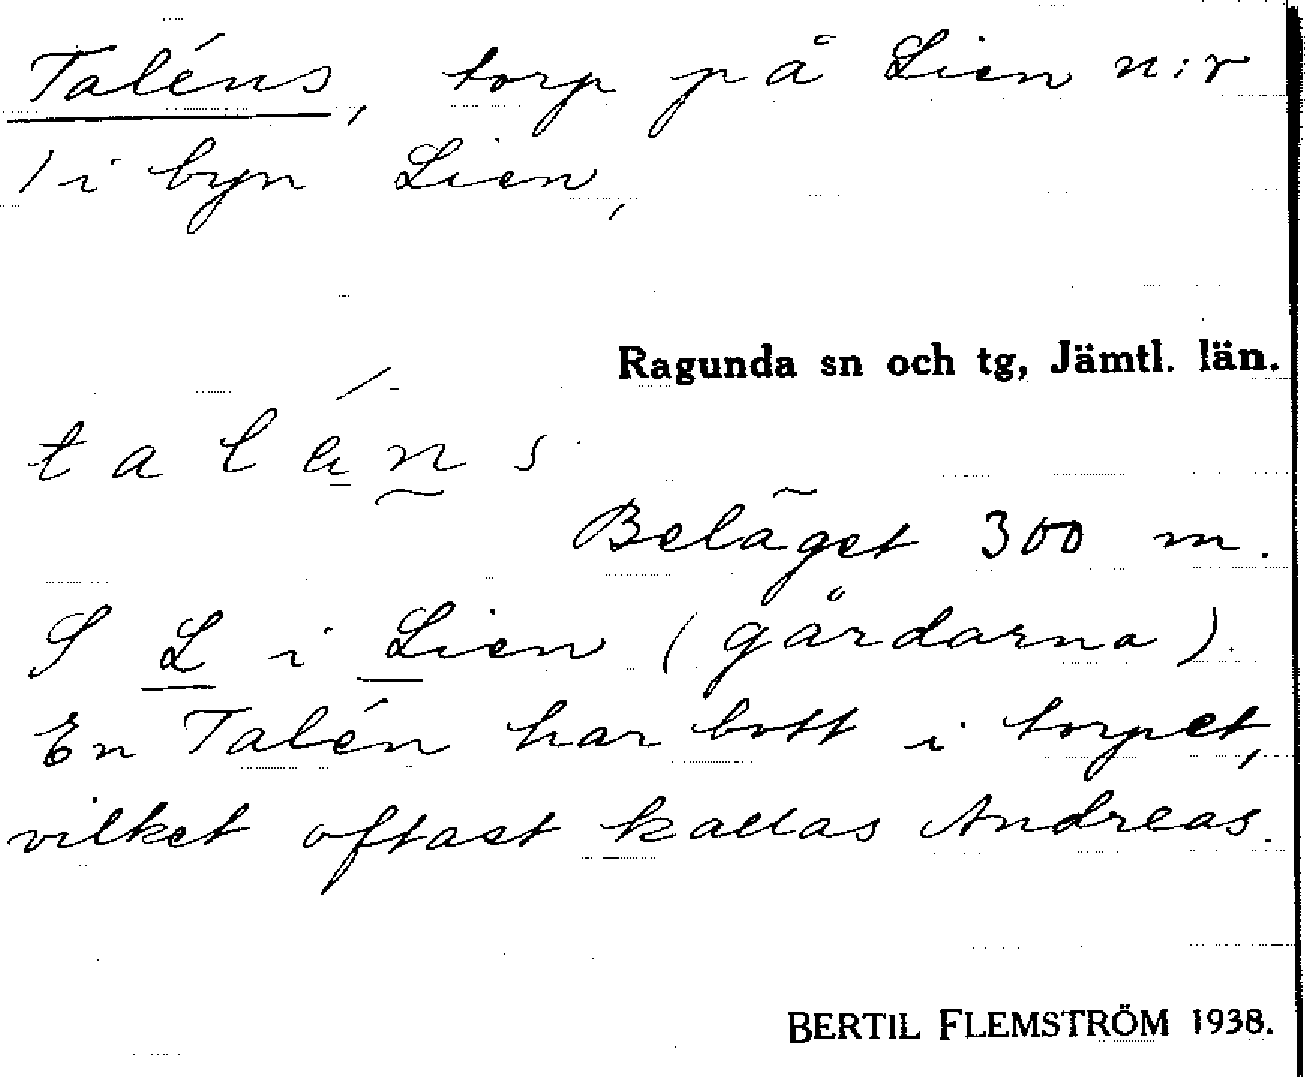 Taléns, torp på Lien n:r
1 i byn Lien,
Ragunda sn och tg, Jämtl. län.
taléns
Beläget 300 m.
S L i Lien (gårdarna).
En Talén har bott i torpet,
vilket oftast kallas Andreas.
BERTIL FLEMSTRÖM 1938.